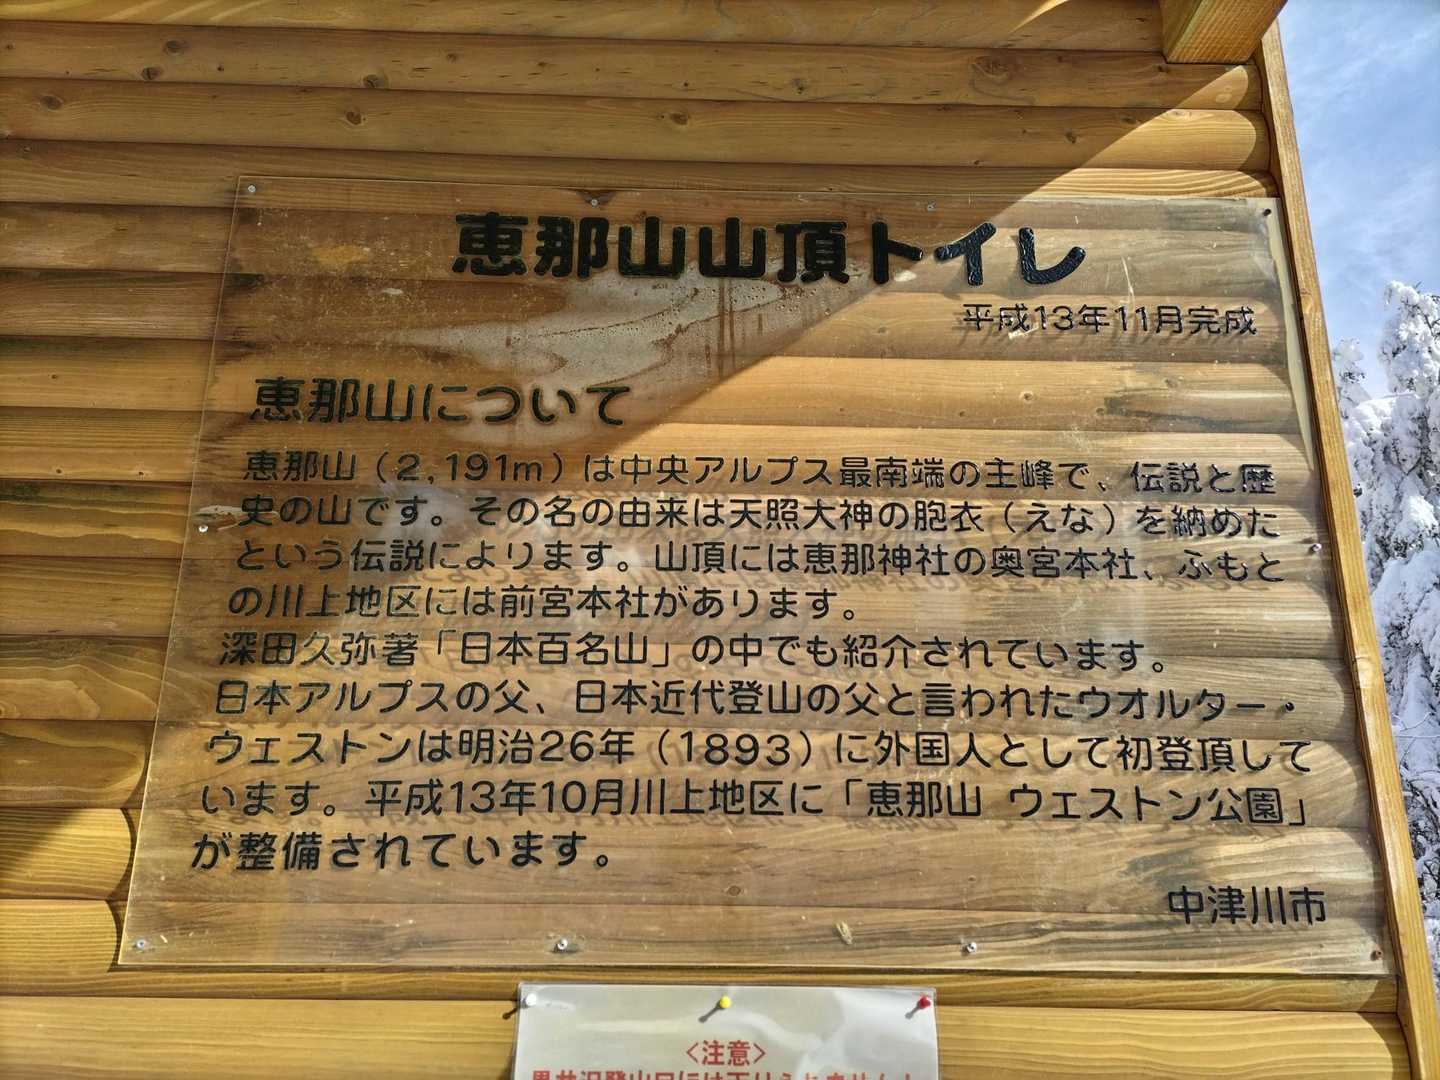 恵那山山頂トイレ
平成13年11月完成
恵那山について
恵那山（2,191m）は中央アルプス最南端の主峰で、伝説と歴
史の山です。その名の由来は天照大神の胞衣（えな）を納めた
という伝説によります。山頂には恵那神社の奥宮本社、ふもと
の川上地区には前宮本社があります。
深田久弥著「日本百名山」の中でも紹介されています。
日本アルプスの父、日本近代登山の父と言われたウオルター・
ウェストンは明治26年（1893）に外国人として初登頂して
います。平成13年10月川上地区に「恵那山 ウェストン公園」
が整備されています。
中津川市
<注意>